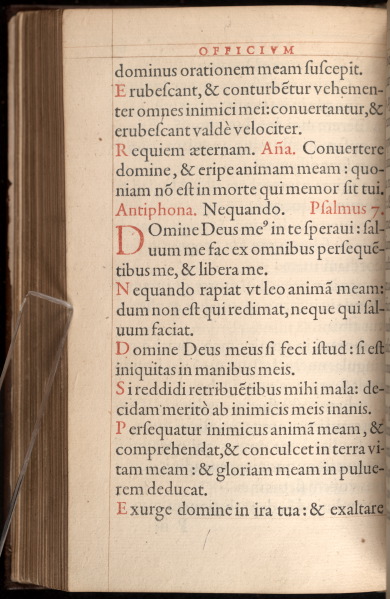 OFFICIVM
dominus orationem meam ſuſcepit.
Erubeſcant, & conturbētur vehemen-
ter omnes inimici mei: conuertantur, &
erubeſcant valdè velociter.
Requiem æternam. Aña. Conuertere
domine, & eripe animam meam : quo-
niam nō eſt in morte qui memor ſit tui.
Antiphona. Nequando. Pſalmus 7.
DOmine Deus meꝰ in te ſperaui : ſal-
uum me fac ex omnibus perſequē-
tibus me, & libera me.
Nequando rapiat vt leo animā meam:
dum non eſt qui redimat, neque qui ſal-
uum faciat.
Domine Deus meus ſi feci iſtud : ſi eſt
iniquitas in manibus meis.
Si reddidi retribuētibus mihi mala: de-
cidam meritò ab inimicis meis inanis.
Perſequatur inimicus animā meam, &
comprehendat, & conculcet in terra vi-
tam meam : & gloriam meam in pulue-
rem deducat.
Exurge domine in ira tua : & exaltare